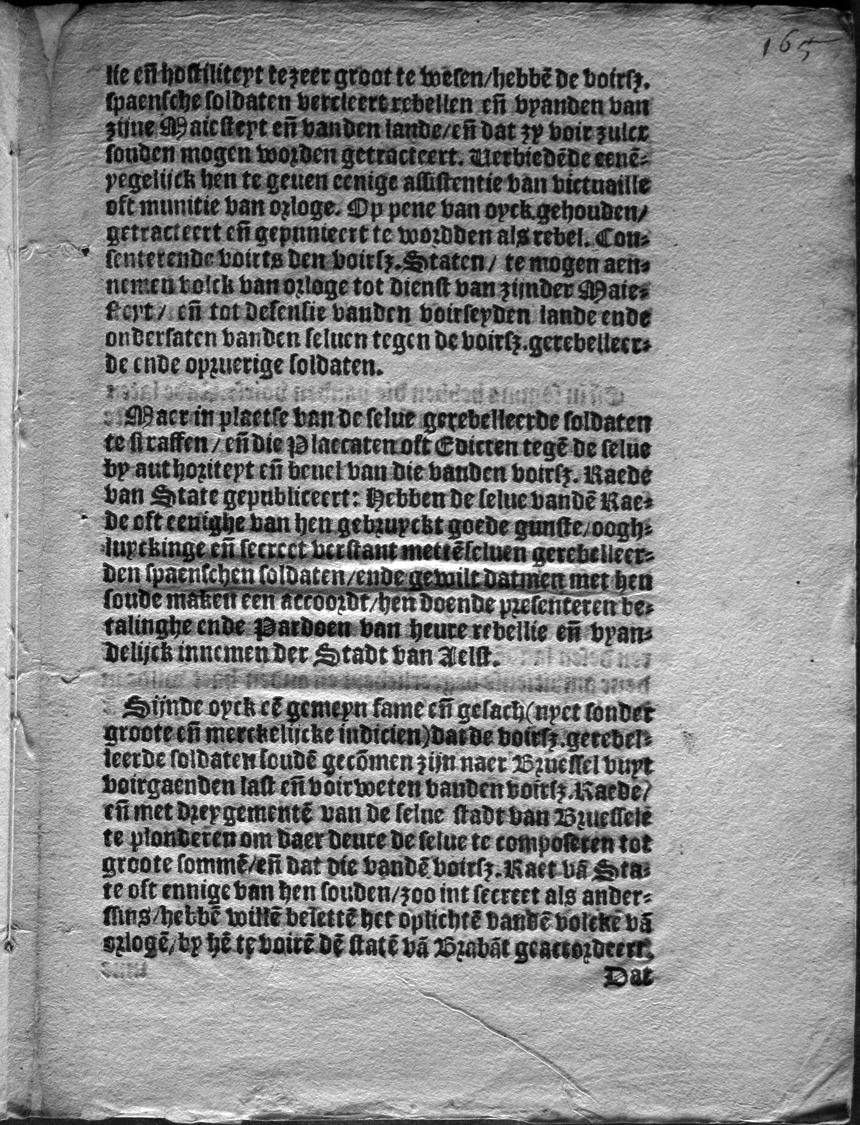 165
lie en̄ hostiliteyt te zeer groot te wesen/hebbē de voirsz.
spaensche soldaten vercleert rebellen en̄ vyanden van
zijne Maiesteyt en̄ vanden lande/en̄ dat zy voir zulcx
souden mogen worden getracteert. Verbiedēde eenē-
yegelijck hen te geuen eenige assistentie van victuaille
oft munitie van orloge. Op pene van oyck gehouden/
getracteert en̄ gepunieert te wordden als rebel. Con-
senterende voirts den voirsz. Staten/ te mogen aen-
nemen volck van orloge tot dienst van zijnder Maie-
steyt/ en̄ tot defensie vanden voirseyden lande ende
ondersaten vanden seluen tegen de voirsz. gerebelleer-
de ende opruerige soldaten.
Maer in plaetse van de selue gerebelleerde soldaten
te straffen/ en̄ die Placcaten oft Edicten tegē de selue
by authoriteyt en̄ beuel van die vanden voirsz. Raede
van State gepubliceert: Hebben de selue vandē Rae-
de oft eenighe van hen gebruyckt goede gunste/oogh-
luyckinge en̄ secreet verstant mettē seluen gerebelleer-
den spaenschen soldaten/ende gewilt datmen met hen
soude maken een accoordt/hen doende presenteren be-
talinghe ende Pardoen van heure rebellie en̄ vyan-
delijck innemen der Stadt van Aelst.
Sijnde oyck eē gemeyn fame en̄ gesach(nyet sonder
groote en̄ merckelijcke indicien)dat de voirsz. gerebel-
leerde soldaten soudē gecōmen zijn naer Bruessel vuyt
voirgaenden last en̄ voirweten vanden voirsz. Raede/
en̄ met dreygementē van de selue stadt van Bruessele
te plonderen om daer deure de selue te composeren tot
groote sommē/en̄ dat die vandē voirsz. Raet vā Sta-
te oft ennige van hen souden/zoo int secreet als ander-
ssins/hebbē willē belettē het oplichtē vandē volcke vā
orlogē/by hē te voirē dē statē vā Brabāt geaccordeert.
Dat